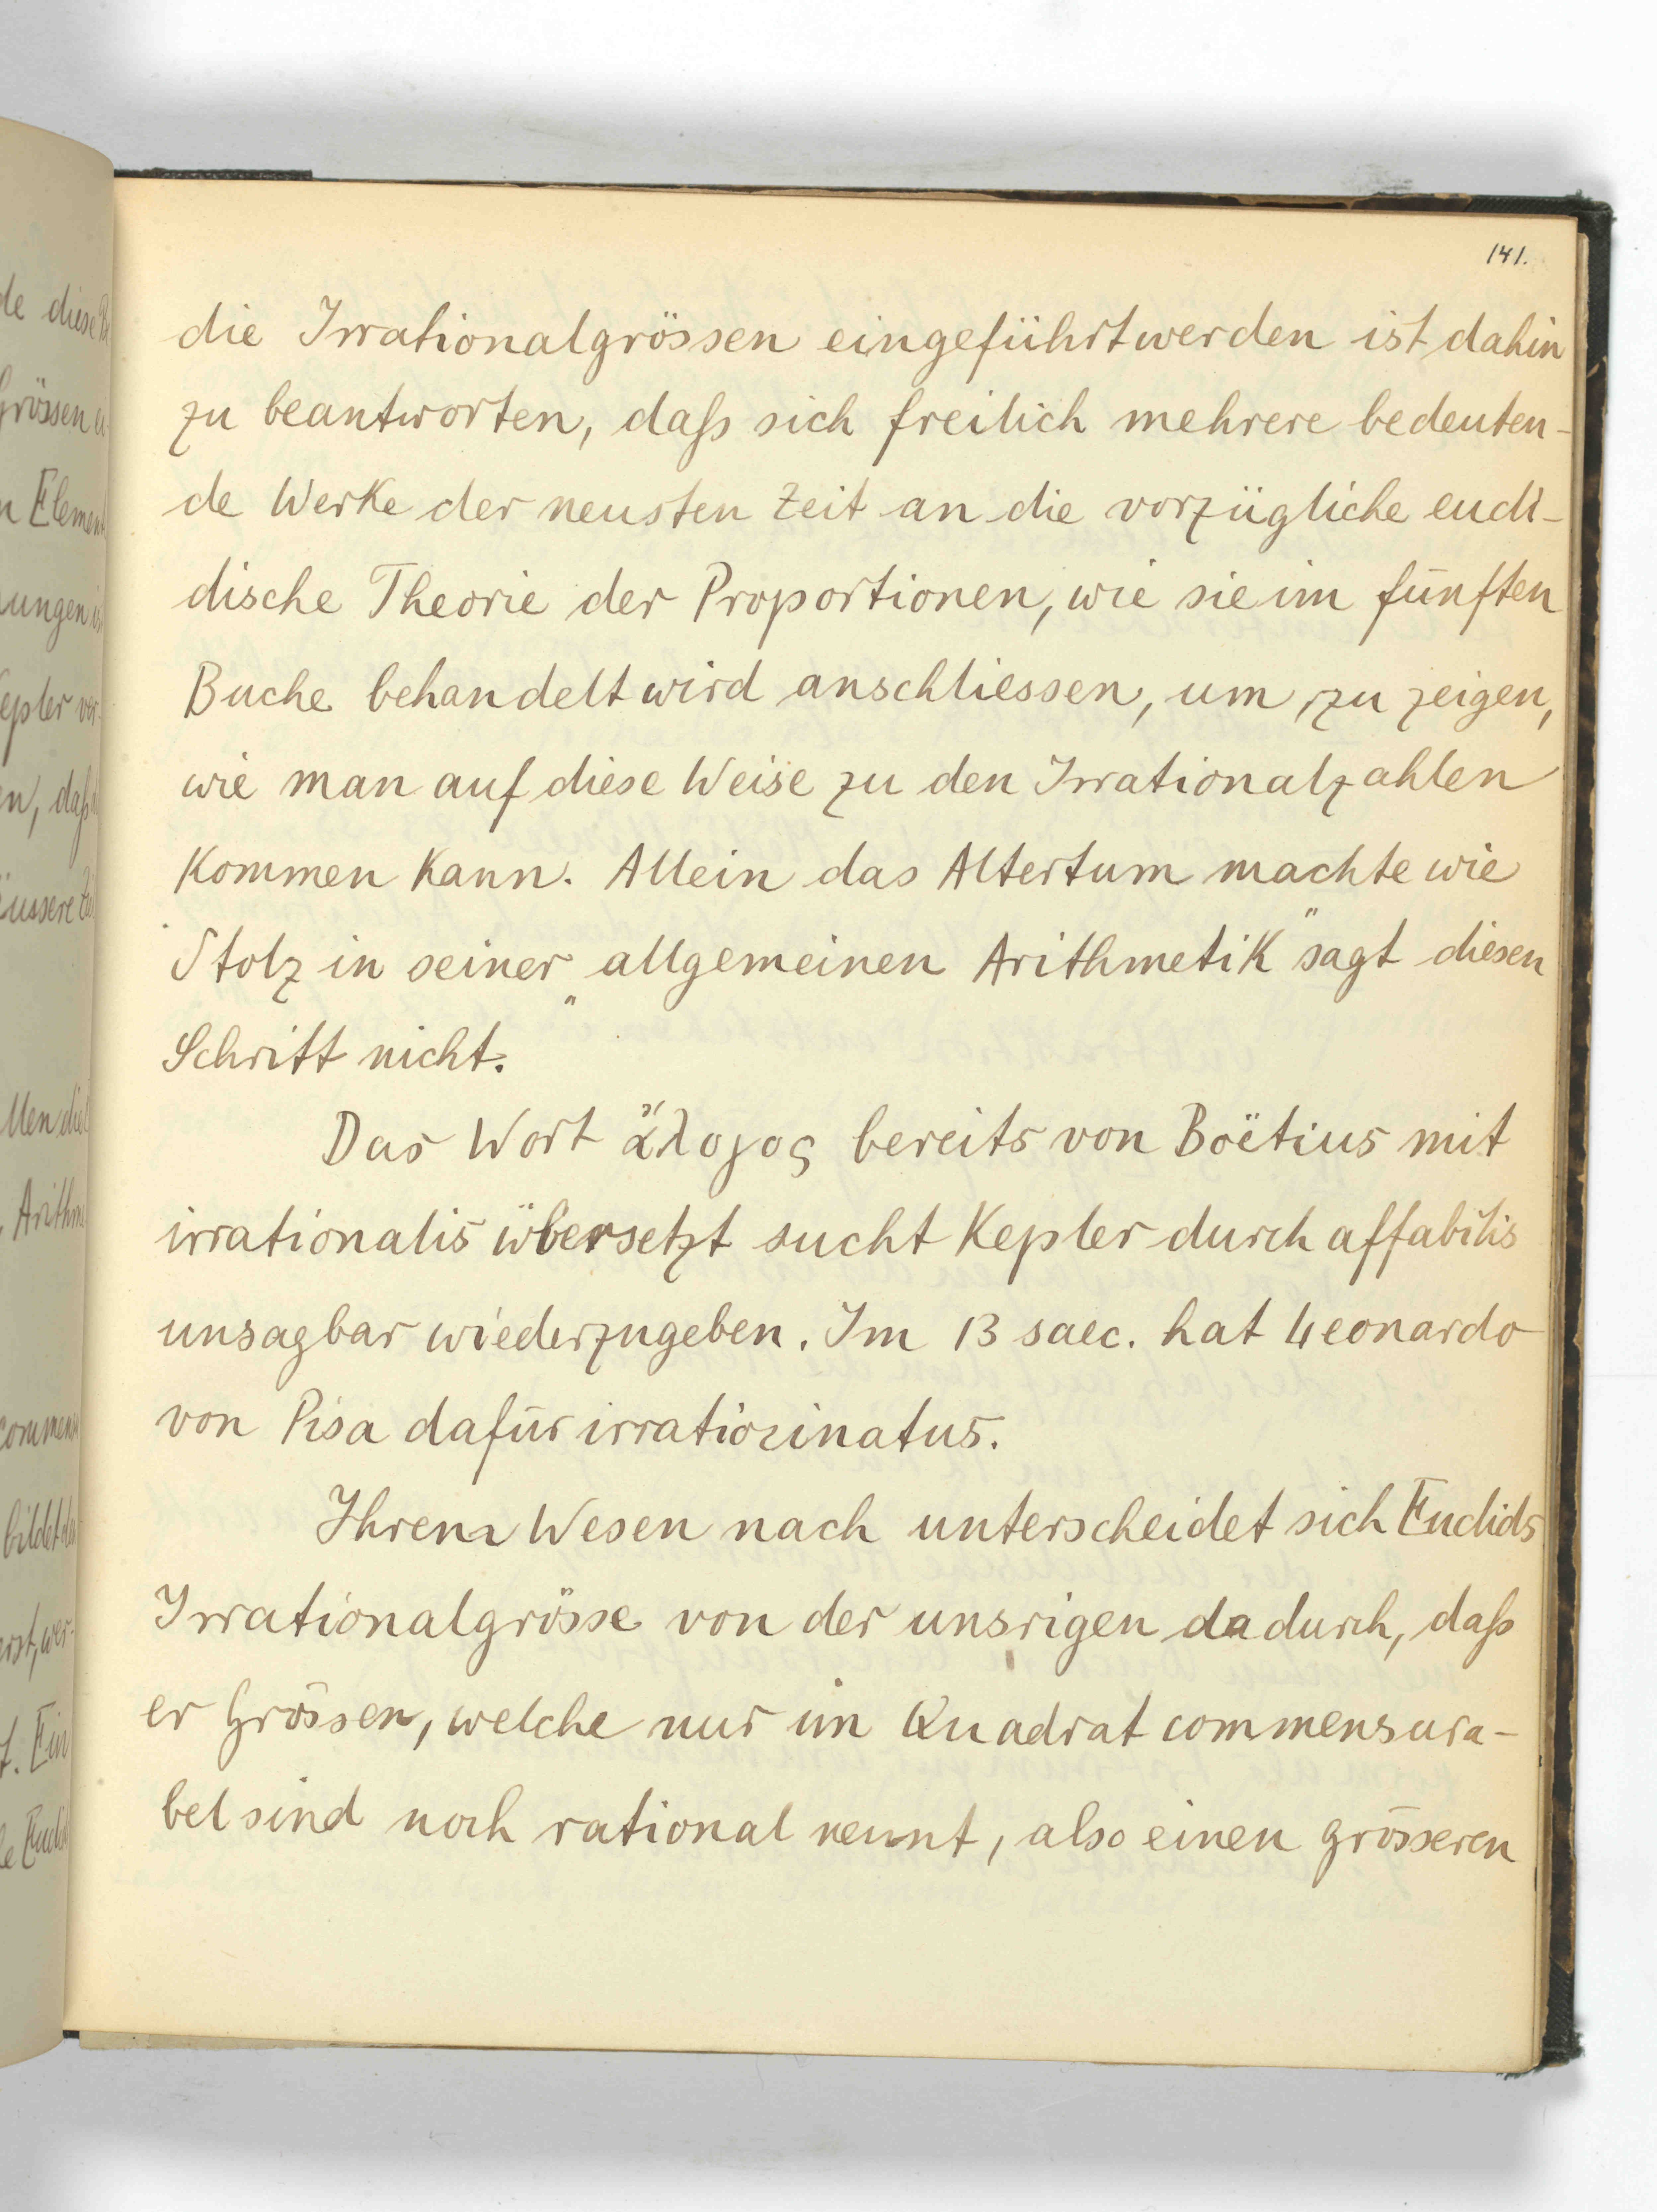 141.
die Irrationalgrössen eingeführt werden ist dahin
zu beantworten, daß sich freilich mehrere bedeuten-
de Werke der neusten Zeit an die vorzügliche eucli-
dische Theorie der Proportionen, wie sie im fünften
Buche behandelt wird anschliessen, um zu zeigen,
wie man auf diese Weise zu den Irrationalzahlen
kommen kann. Allein das Altertum machte wie
Stolz in seiner „allgemeinen Arithmetik" sagt diesen
Schritt nicht.
Das Wort ἄλογος bereits von Boëtius mit
irrationalis übersetzt sucht Kepler durch affabilis
unsagbar wiederzugeben. Im 13 saec. hat Leonardo
von Pisa dafür irratiocinatus.
Ihrem Wesen nach unterscheidet sich Euclids
Irrationalgrösse von der unsrigen dadurch, daß
er Grössen, welche nur im Quadrat commensura-
bel sind noch rational nennt, also einen grösseren